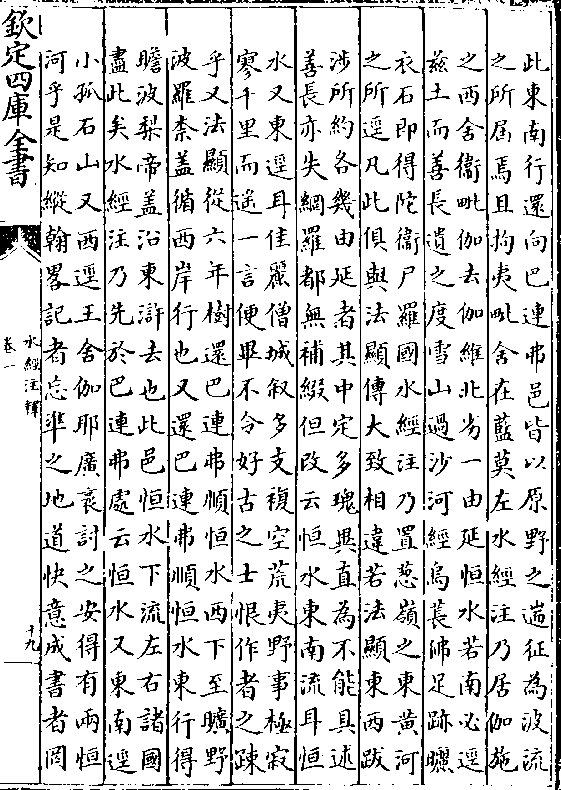 此東南行還向巴連弗邑皆以原野之遄征為波流
之所届焉且拘夷毗舍在藍莫左水經注乃居伽施
之西舍衛毗伽去伽維北劣一由延恒水若南必逕
兹土而善長遺之度雪山過沙河經烏萇佛足跡曬
衣石即得陀衛尸羅國水經注乃置葱嶺之東黄河
之所逕凡此俱與法顯傳大致相違若法顯東西跋
涉所約各幾由延者其中定多瑰異直為不能具述
善長亦失網羅都無補綴但改云恒水東南流耳恒
水又東逕耳佳麗僧城叙多支複空荒夷野事極寂
寥千里而遥一言便畢不令好古之士恨作者之疎
乎又法顯從六年樹還巴連弗順恒水西下至曠野
波羅柰蓋循西岸行也又還巴連弗順恒水東行得
瞻波梨帝蓋沿東滸去也此邑恒水下流左右諸國
盡此矣水經注乃先於巴連弗處云恒水又東南逕
小孤石山又西逕王舍伽耶廣袤討之安得有兩恒
河乎是知縱翰畧記者忘準之地道快意成書者罔
欽定四庫全書
水經注釋
卷一
十九